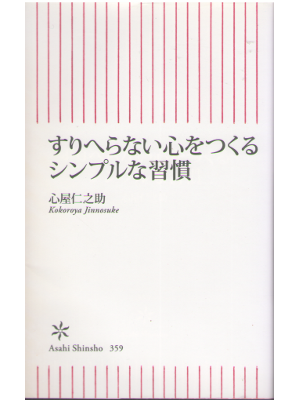 すりへらない心をつくる
シンプルな習慣
心屋仁之助
Kokoroya Jinnosuke
Asahi Shinsho 359